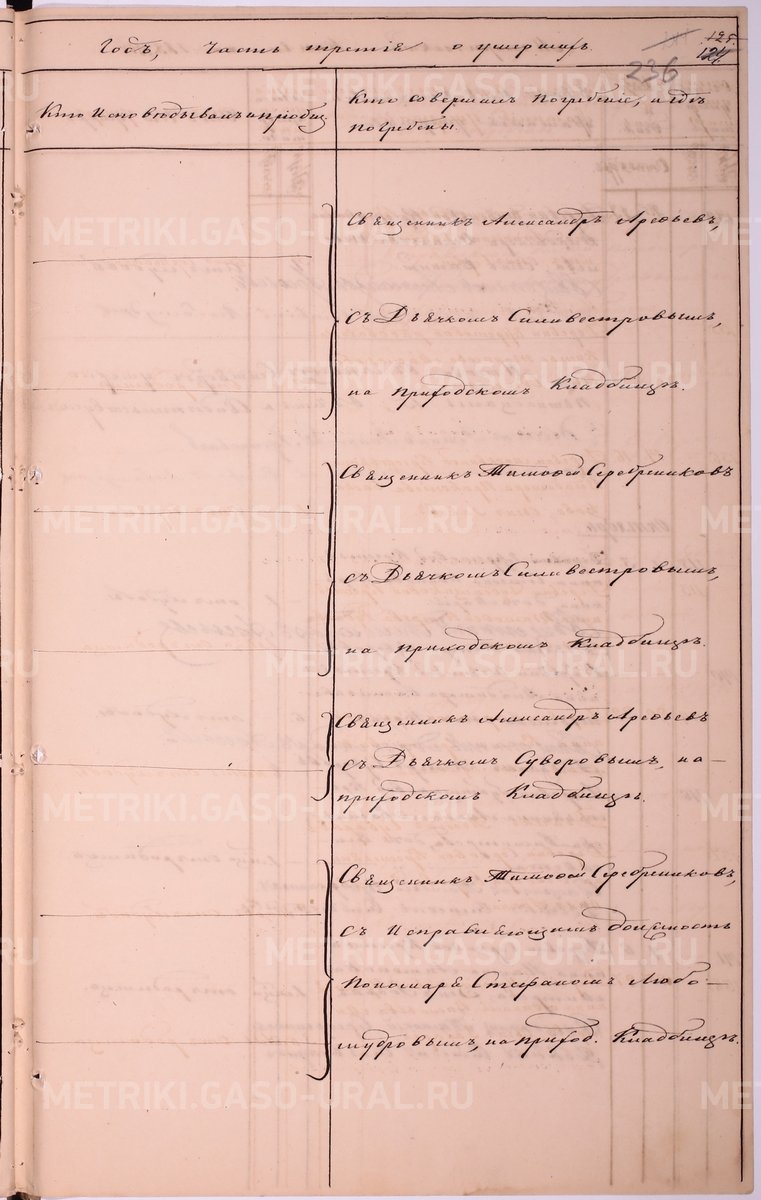 Годъ, часть третія о умершихъ.
125
124
236
Кто исповѣдывалъ и пріобщ.
Кто совершалъ погребеніе, и гдѣ
погребены.
Священникъ Александръ Арефьевъ,
съ Дьячкомъ Сильвестровымъ,
на приходскомъ Кладбищѣ.
Священникъ Тимофей Серебренниковъ
съ Дьячкомъ Сильвестровымъ,
на приходскомъ Кладбищѣ.
Священникъ Александръ Арефьевъ
съ Дьячкомъ Суворовымъ, на
приходскомъ Кладбищѣ.
Священникъ Тимофей Серебренниковъ,
съ исправляющимъ должность
пономаря Стефаномъ Любо-
мудровымъ, на приход. Кладбищѣ.
METRIKI.GASO-URAL.RU